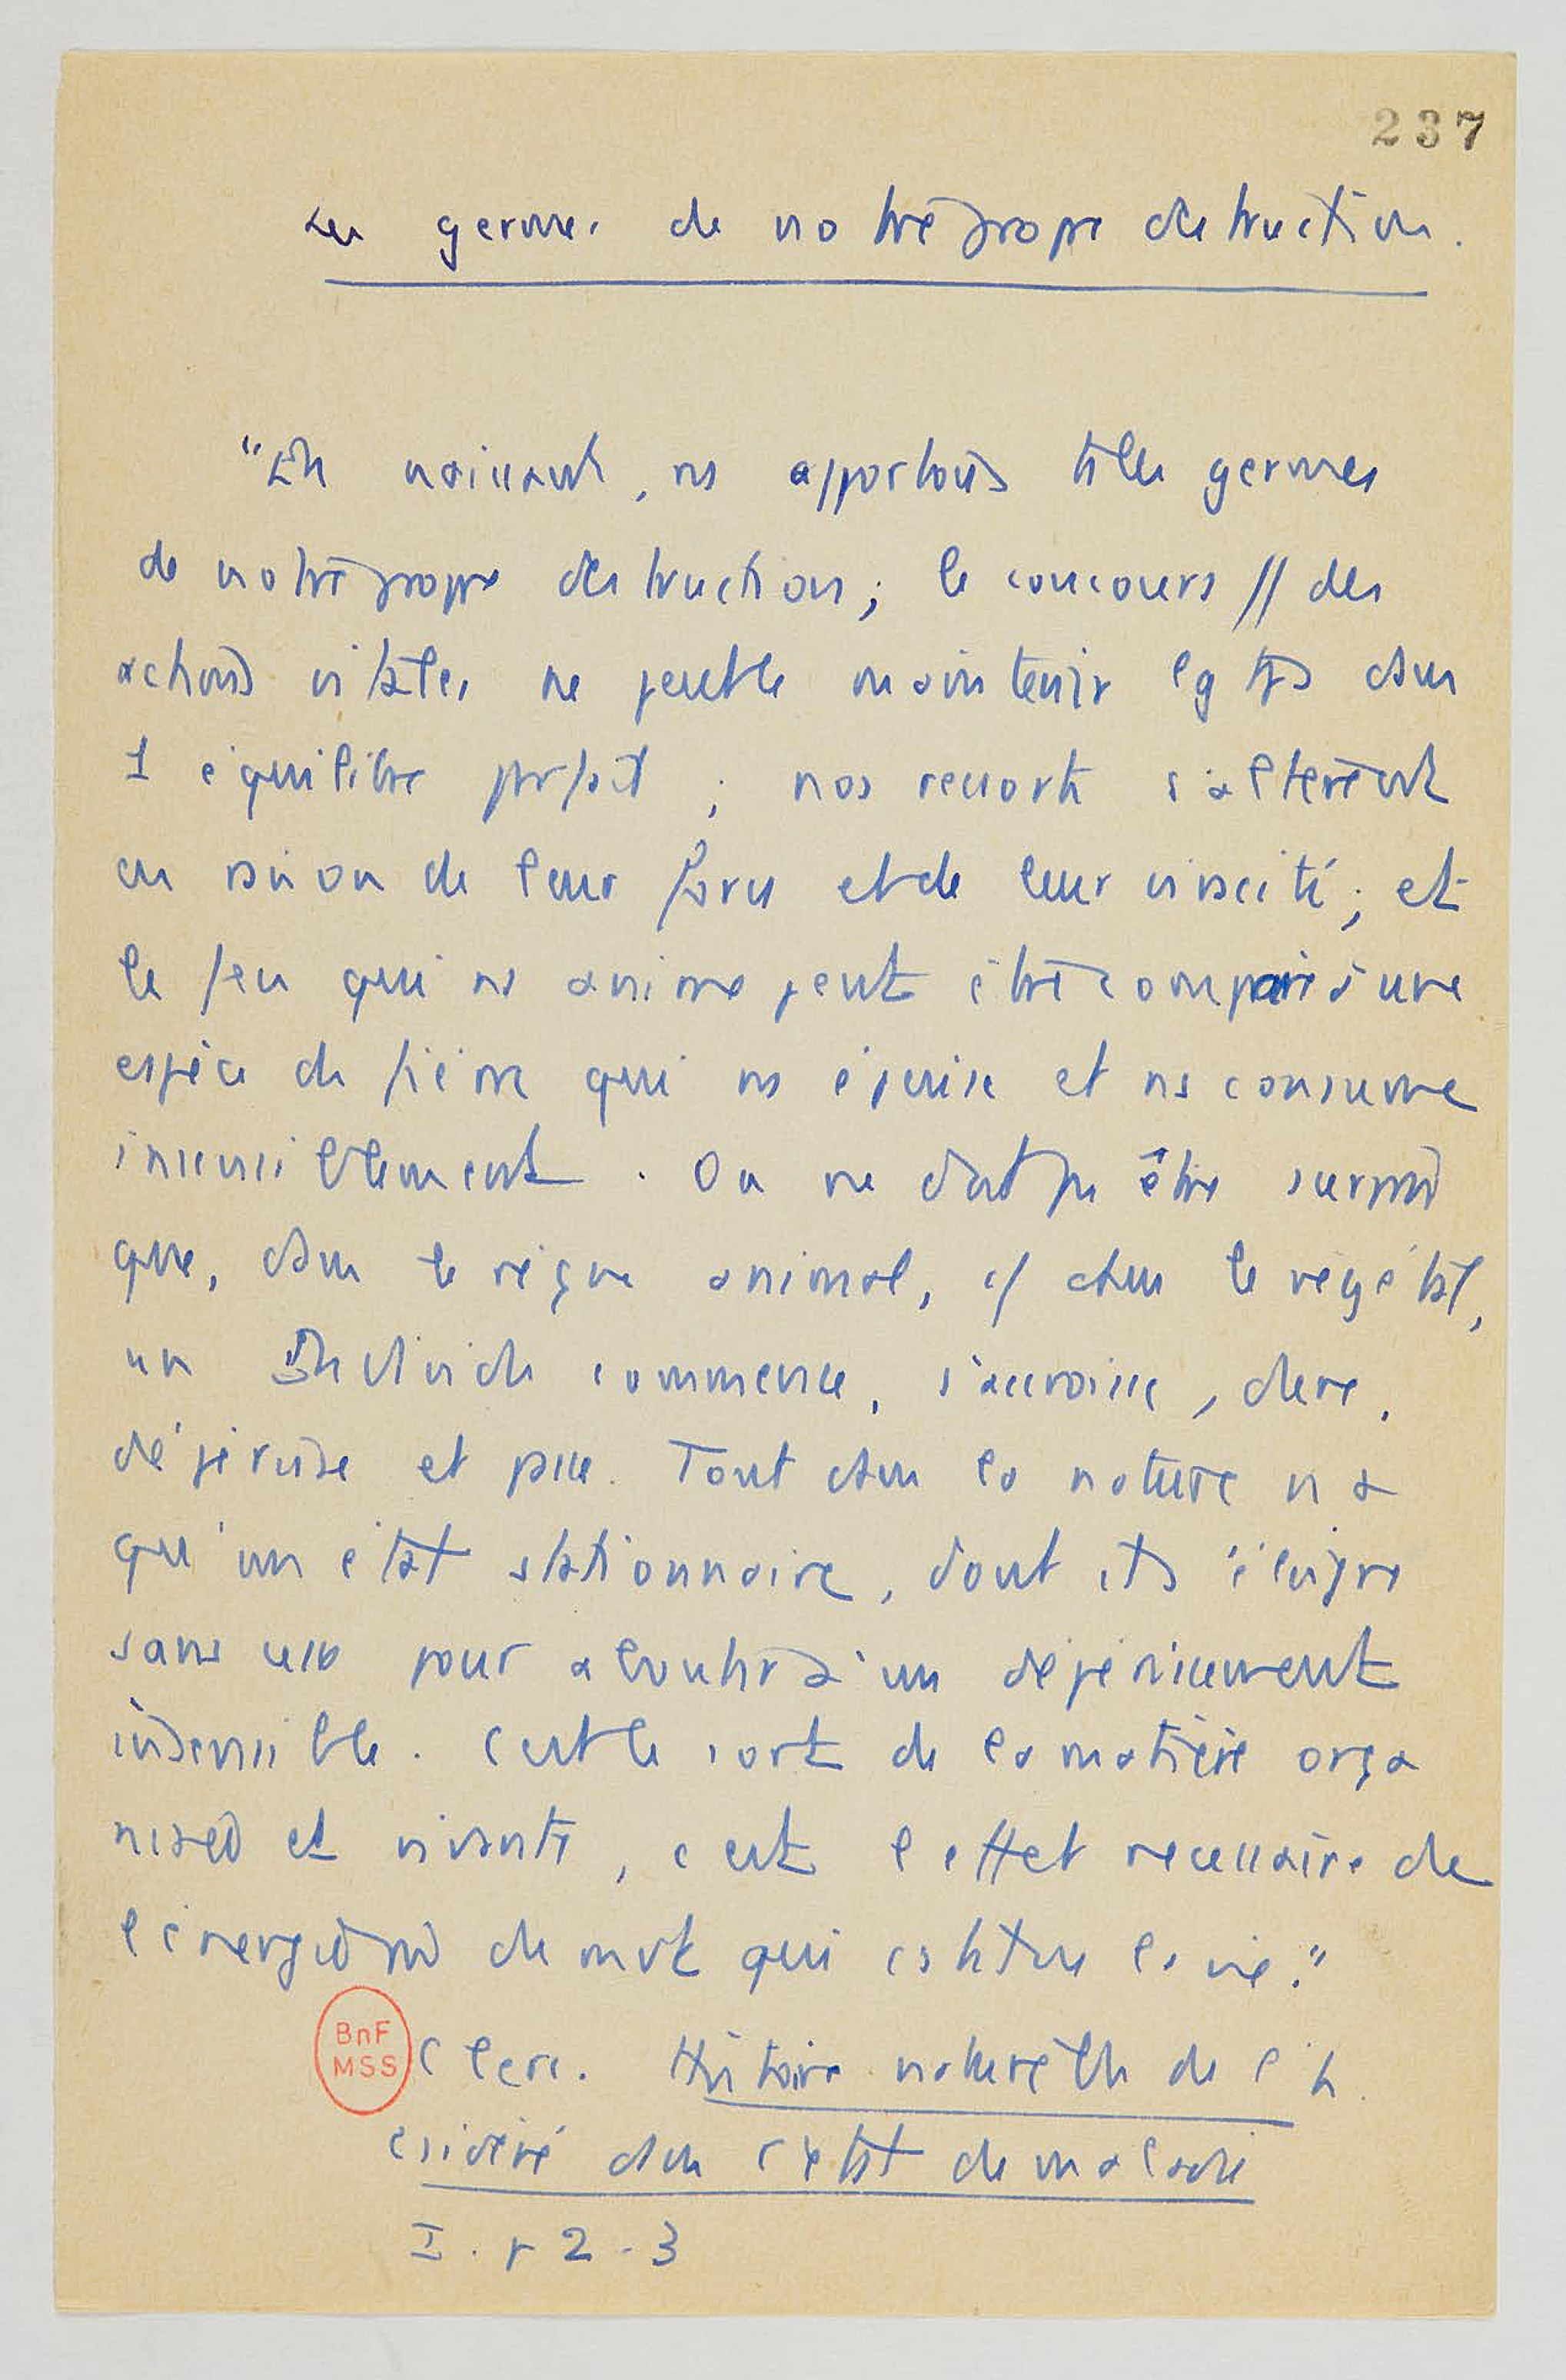 237
Les germes de notre propre destruction.
"En naissant, ns apportons ts les germes
de notre propre destruction ; le concours // des
actions vitales ne peut le maintenir lgtps dans
1 équilibre parfait ; nos ressorts s'altèrent
en raison de leur force et de leur vivacité ; et
le feu qui ns anime peut être comparé à une
espèce de fièvre qui ns épuise et ns consume
insensiblement. On ne doit pas être surpris
que, dans le règne animal, c/ dans le végétal,
un individu commence, s'accroisse, dure,
dépérisse et passe. Tout dans la nature n'a
qu'un état stationnaire, dont s'éloigne
sans cesse pour aboutir à un dépérissement
insensible. C'est le sort de la matière orga
nisée et vivante, c'est l'effet nécessaire de
l'énergie du mvt qui cstitue la vie."
BnF
MSS
Clerc. Histoire naturelle de l'h.
csidéré dans l'état de maladie
I. p 2-3